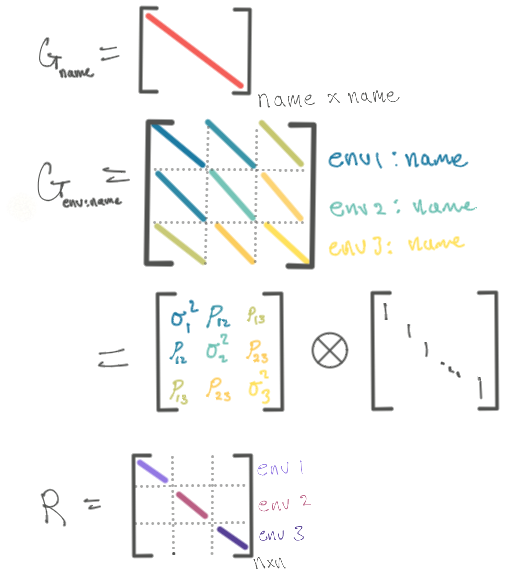 G name =
name x name
G env:name =
env1 : name
env 2 : name
env 3 : name
= σ₁² ρ₁₂ ρ₁₃
ρ₁₂ σ₂² ρ₂₃ ⊗
ρ₁₃ ρ₂₃ σ₃²
1
1
1
...
1
R =
env 1
env 2
env 3
nxn